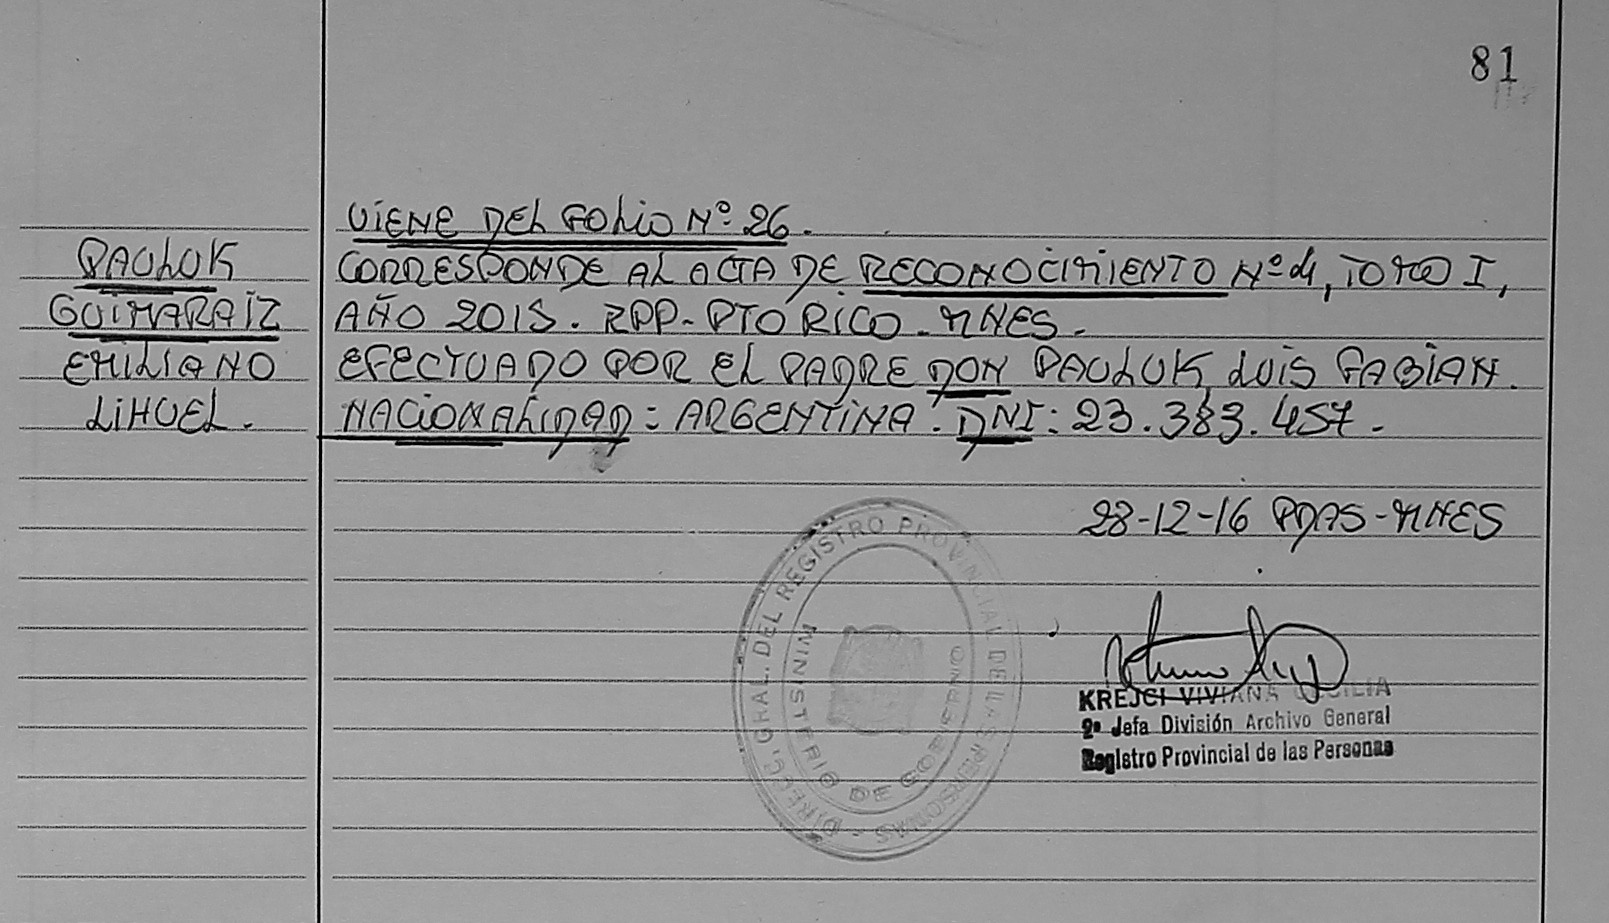 81
VIENE DEL FOLIO Nº 26.
PAULUK
GUIMARAIZ
EMILIANO
LIHUEL.
CORRESPONDE AL ACTA DE RECONOCIMIENTO Nº 4, TOMO I,
AÑO 2015. RPP - PTO RICO - MNES.
EFECTUADO POR EL PADRE DON PAULUK, LUIS FABIAN.
NACIONALIDAD: ARGENTINA. DNI: 23.383.457.
28-12-16 PDAS-MNES
DIREC. GRAL. DEL REGISTRO PROVINCIAL DE LAS PERSONAS -
MINISTERIO DE GOBIERNO
KREJCI VIVIANA CECILIA
2º Jefa División Archivo General
Registro Provincial de las Personas